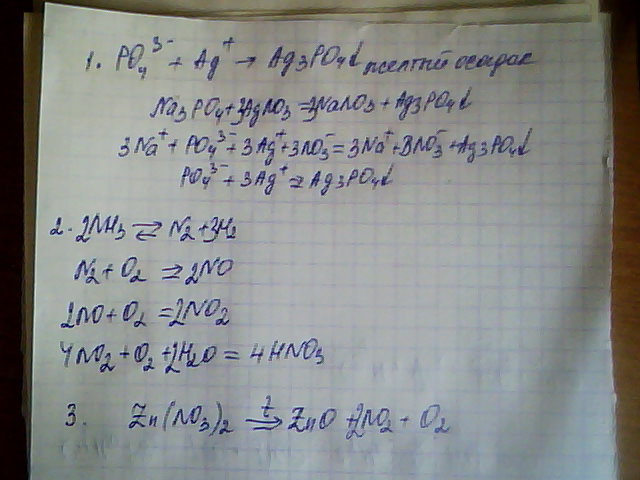 1. PO₄³⁻ + Ag⁺ → Ag₃PO₄↓ желтый осадок
Na₃PO₄ + 3AgNO₃ = 3NaNO₃ + Ag₃PO₄↓
3Na⁺ + PO₄³⁻ + 3Ag⁺ + 3NO₃⁻ = 3Na⁺ + 3NO₃⁻ + Ag₃PO₄↓
PO₄³⁻ + 3Ag⁺ = Ag₃PO₄↓
2. 2NH₃ ⇌ N₂ + 3H₂
N₂ + O₂ ⇌ 2NO
2NO + O₂ = 2NO₂
4NO₂ + O₂ + 2H₂O = 4HNO₃
3. Zn(NO₃)₂ =t> ZnO + 2NO₂ + O₂